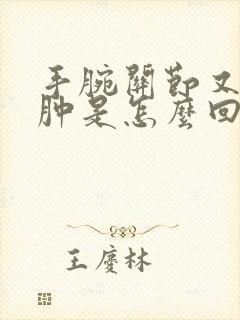 手腕關節又
肿是怎麼回
王慶林